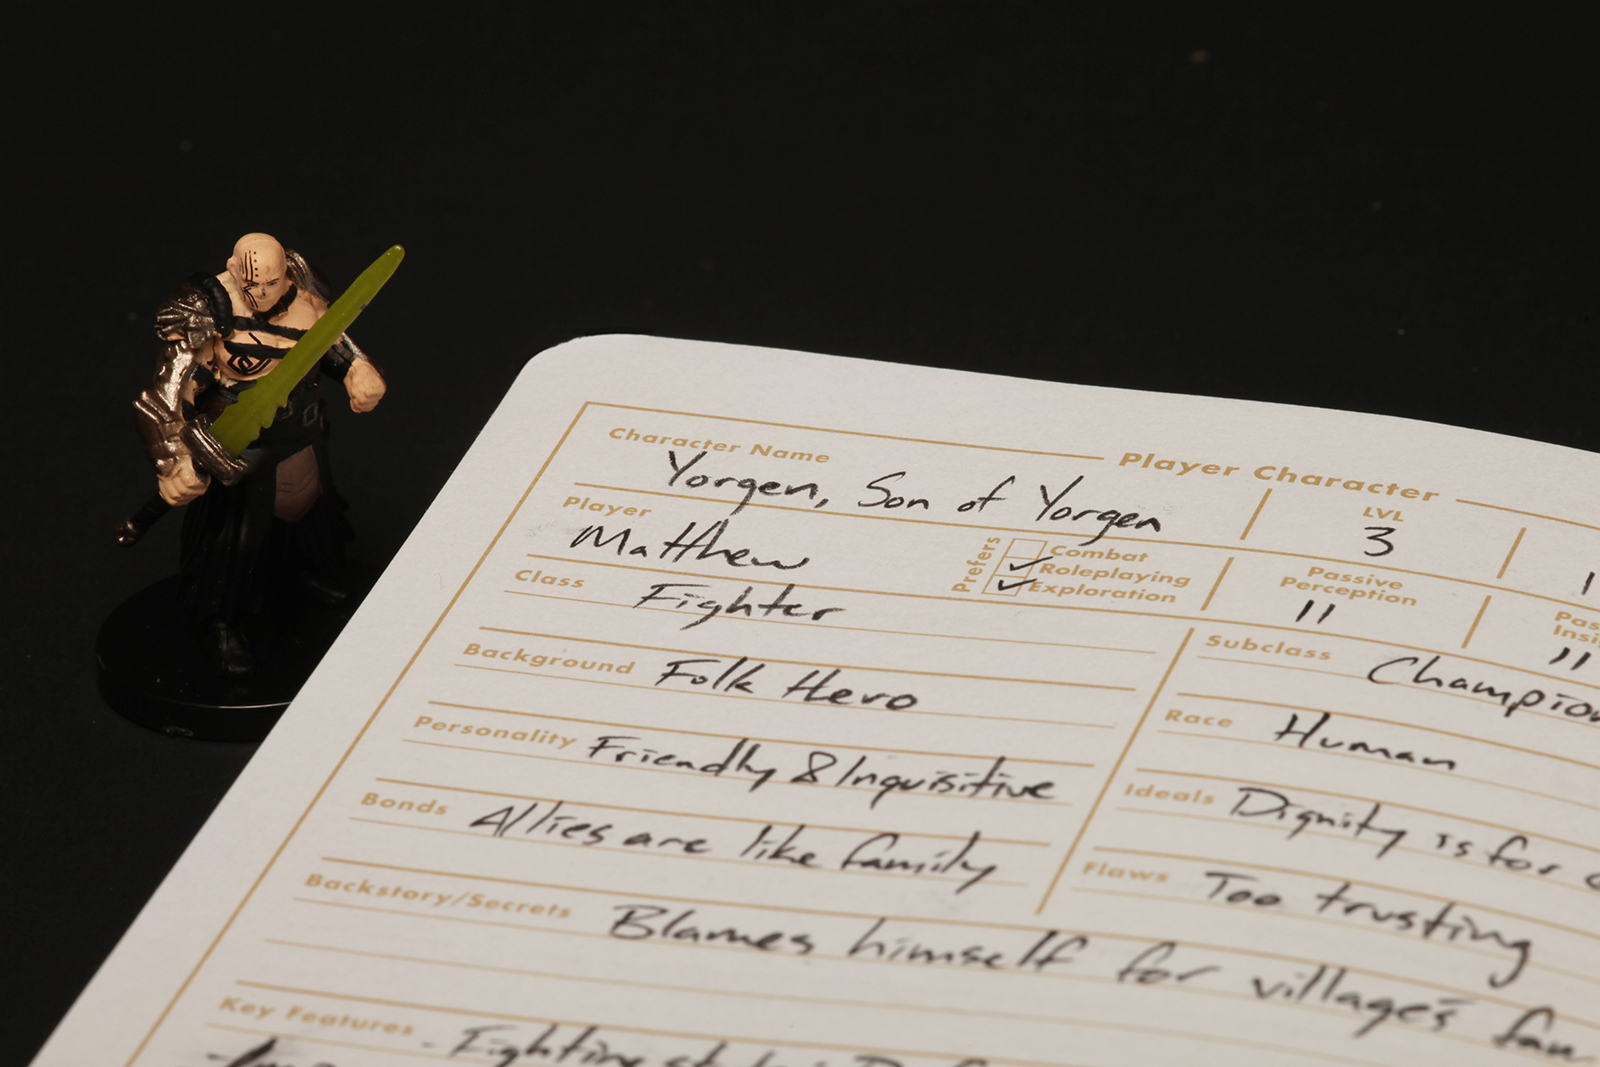 Player Character
Character Name Yorgen, Son of Yorgen
LVL 3
Player Matthew
Prefers
Combat
Roleplaying
Exploration
Passive Perception 11
11
Class Fighter
Subclass Champion
Background Folk Hero
Race Human
Personality Friendly & Inquisitive
Ideals Dignity is for
Bonds Allies are like family
Flaws Too trusting
Backstory/Secrets Blames himself for village's
Key Features - Fighting